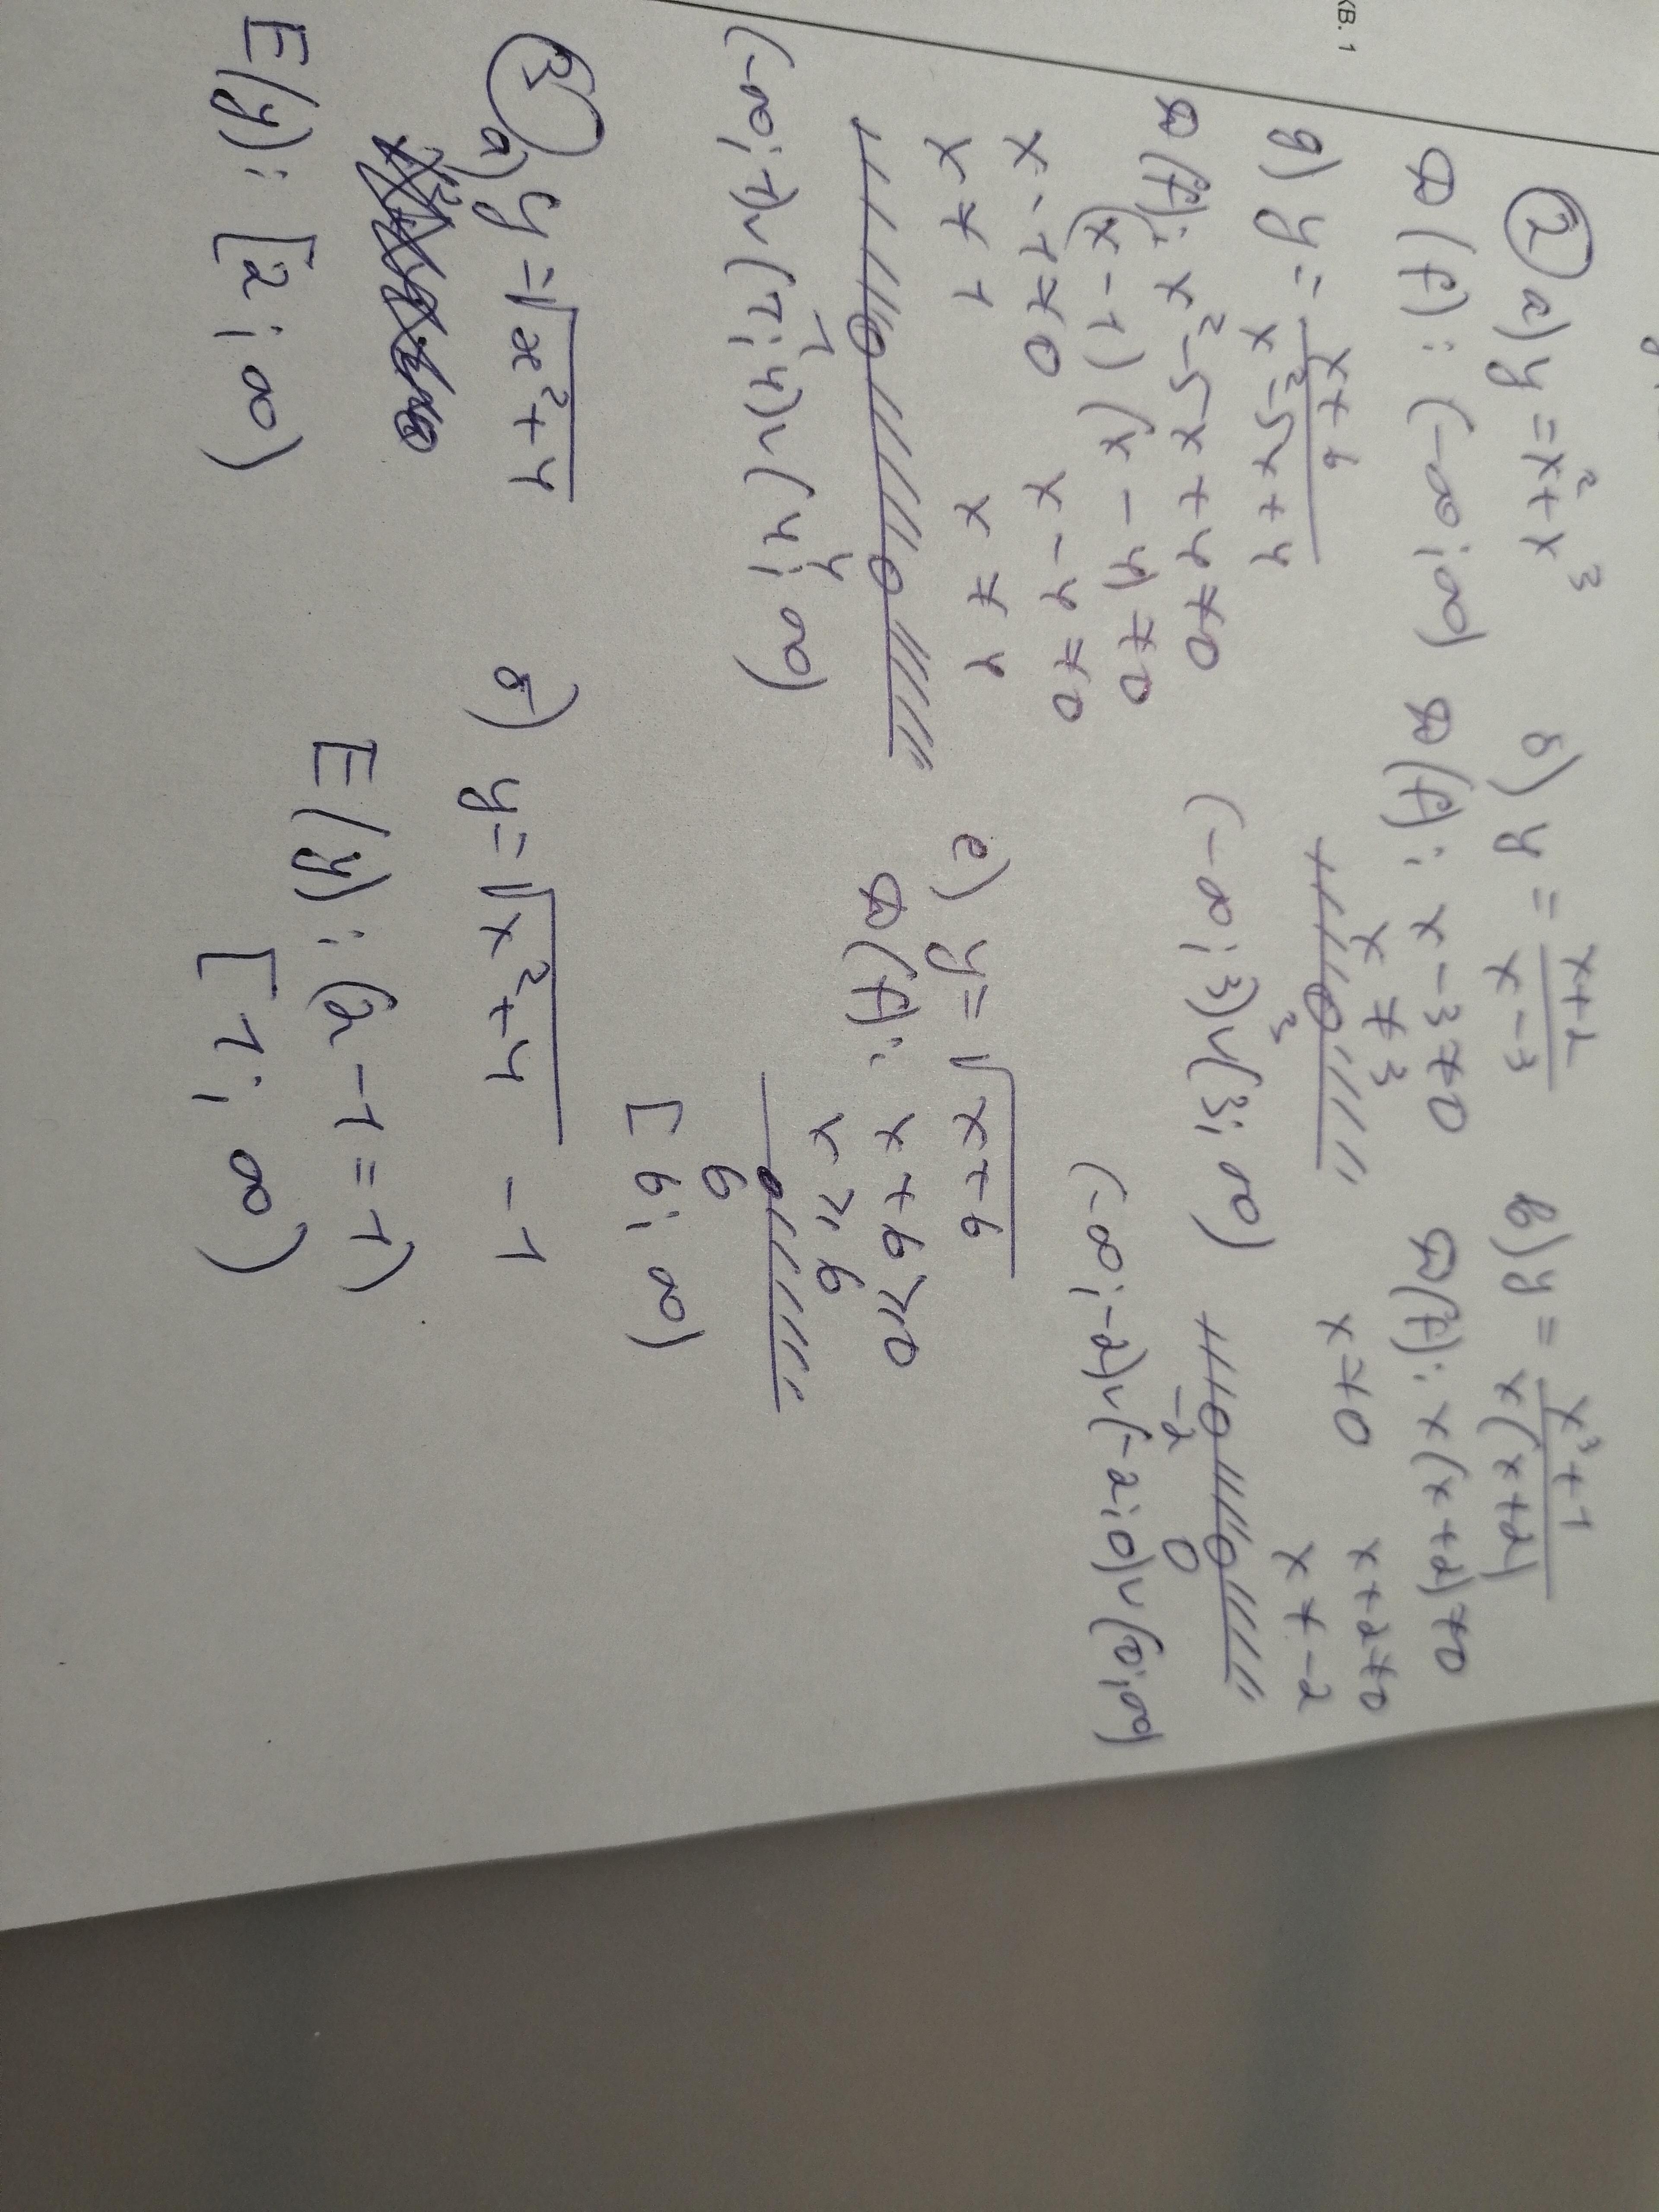 КВ. 1
② а) y = x² + x³
D(f): (-∞; ∞)
б) y = x+2 / x-3
D(f): x - 3 ≠ 0
x ≠ 3
3
(-∞; 3)∪(3; ∞)
в) y = x³+1 / x(x+2)
D(f): x(x+2) ≠ 0
x ≠ 0 x+2 ≠ 0
x ≠ -2
-2 0
(-∞; -2)∪(-2; 0)∪(0; ∞)
g) y = x+6 / x²-5x+4
D(f): x² - 5x + 4 ≠ 0
(x - 1)(x - 4) ≠ 0
x - 1 ≠ 0 x - 4 ≠ 0
x ≠ 1 x ≠ 4
1 4
(-∞; 1)∪(1; 4)∪(4; ∞)
е) y = √x+6
D(f): x + 6 ≥ 0
x ≥ 6
6
[6; ∞)
③ а) y = √x²+4
E(y): [2; ∞)
б) y = √x²+4 - 1
E(y): (2 - 1 = 1)
[1; ∞)